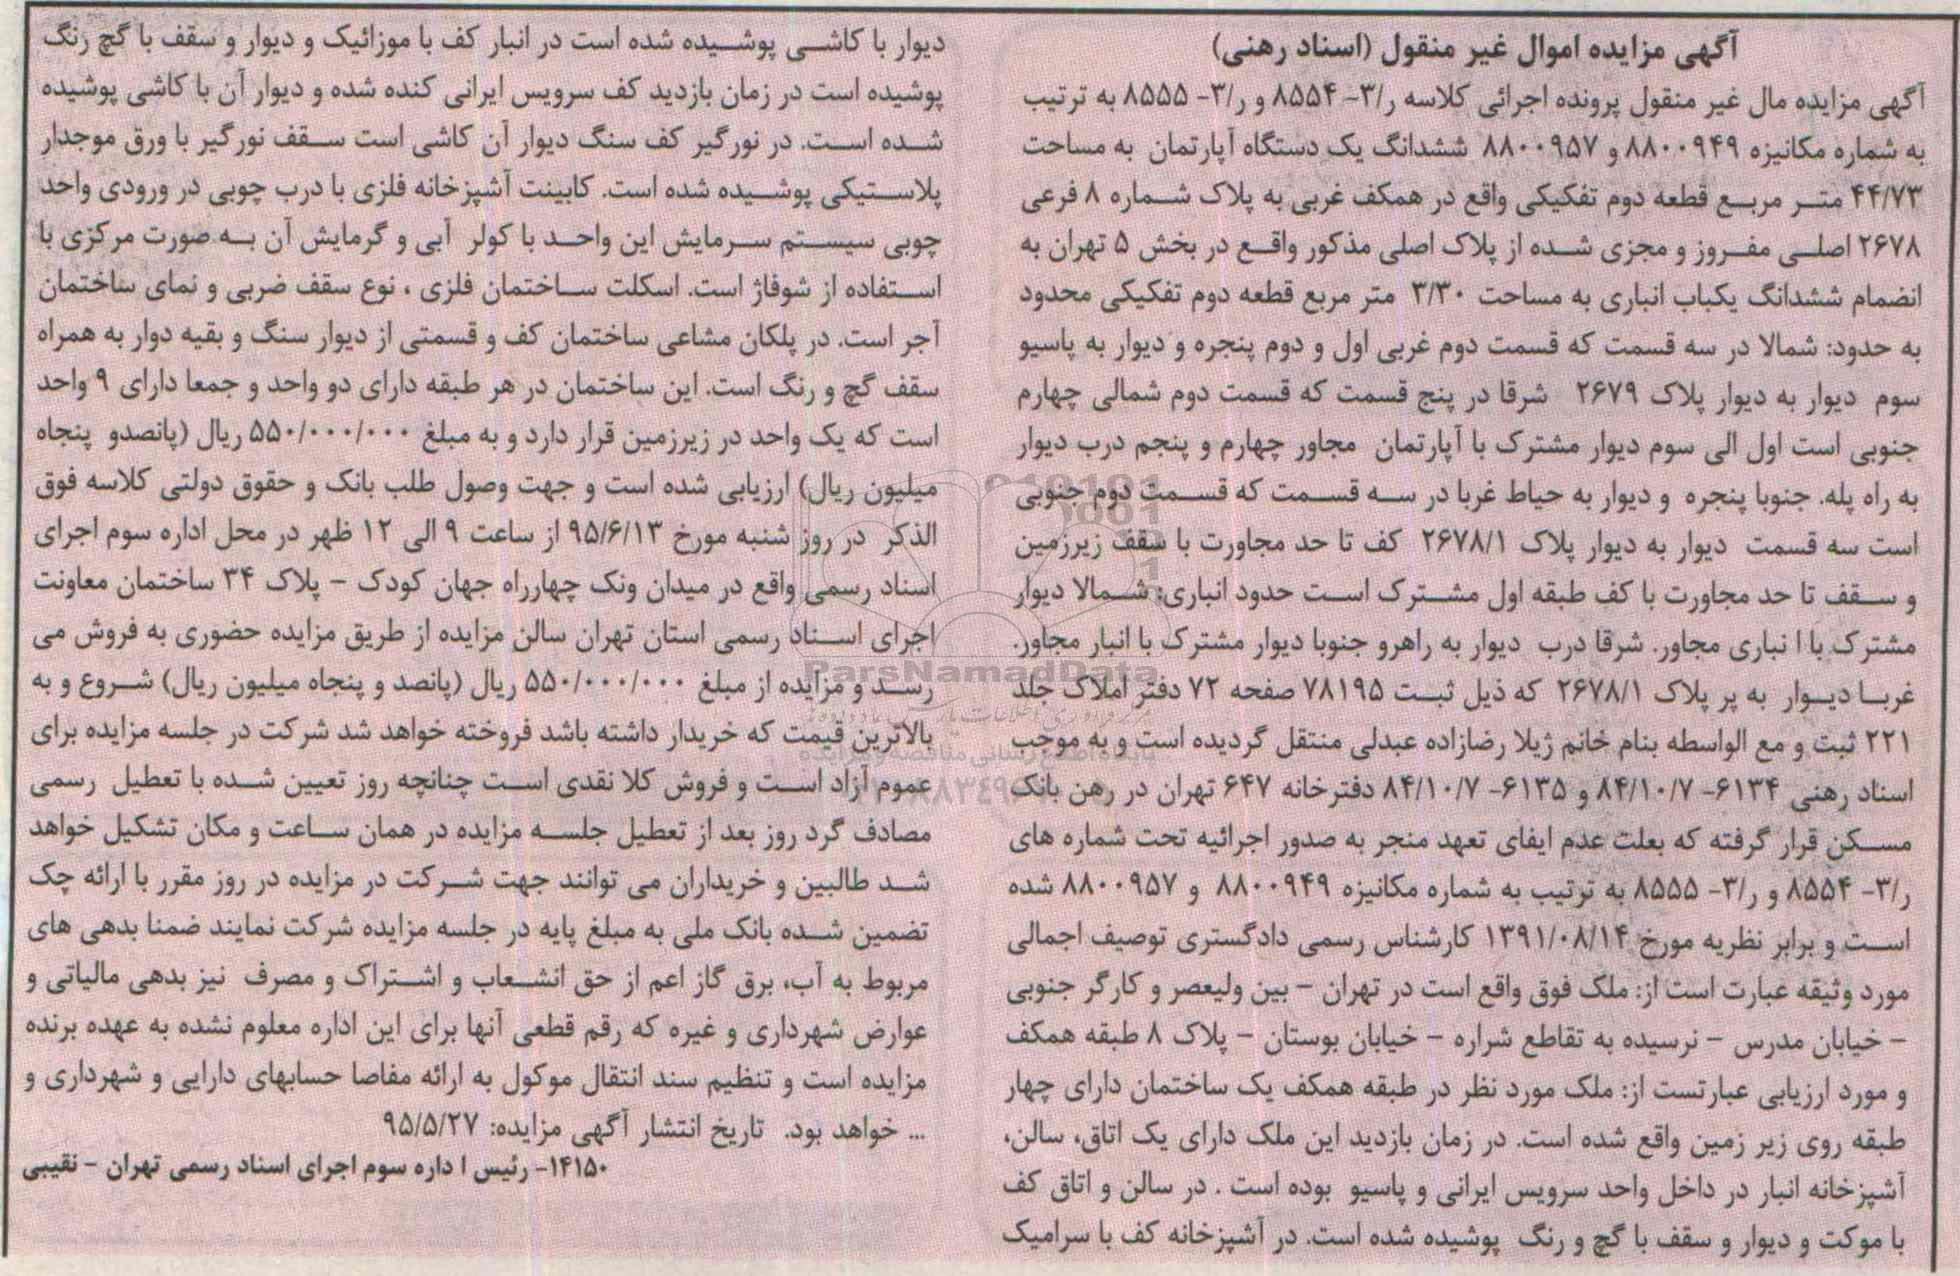 آگهی مزایده اموال غیر منقول (اسناد رهنی)
آگهی مزایده مال غیر منقول پرونده اجرائی کلاسه ر/۳- ۸۵۵۴ و ر/۳- ۸۵۵۵ به ترتیب
به شماره مکانیزه ۸۸۰۰۹۴۹ و ۸۸۰۰۹۵۷ ششدانگ یک دستگاه آپارتمان به مساحت
۴۴/۷۳ متر مربع قطعه دوم تفکیکی واقع در همکف غربی به پلاک شماره ۸ فرعی
۲۶۷۸ اصلی مفروز و مجزی شده از پلاک اصلی مذکور واقع در بخش ۵ تهران به
انضمام ششدانگ یکباب انباری به مساحت ۳/۳۰ متر مربع قطعه دوم تفکیکی محدود
به حدود: شمالا در سه قسمت که قسمت دوم غربی اول و دوم پنجره و دیوار به پاسیو
سوم دیوار به دیوار پلاک ۲۶۷۹ شرقا در پنج قسمت که قسمت دوم شمالی چهارم
جنوبی است اول الی سوم دیوار مشترک با آپارتمان مجاور چهارم و پنجم درب دیوار
به راه پله. جنوبا پنجره و دیوار به حیاط غربا در سه قسمت که قسمت دوم جنوبی
است سه قسمت دیوار به دیوار پلاک ۲۶۷۸/۱ کف تا حد مجاورت با سقف زیرزمین
و سقف تا حد مجاورت با کف طبقه اول مشترک است حدود انباری: شمالا دیوار
مشترک با ا نباری مجاور. شرقا درب دیوار به راهرو جنوبا دیوار مشترک با انبار مجاور.
غربا دیوار به پر پلاک ۲۶۷۸/۱ که ذیل ثبت ۷۸۱۹۵ صفحه ۷۲ دفتر املاک جلد
۲۲۱ ثبت و مع الواسطه بنام خانم ژیلا رضازاده عبدلی منتقل گردیده است و به موجب
اسناد رهنی ۶۱۳۴- ۸۴/۱۰/۷ و ۶۱۳۵- ۸۴/۱۰/۷ دفترخانه ۶۴۷ تهران در رهن بانک
مسکن قرار گرفته که بعلت عدم ایفای تعهد منجر به صدور اجرائیه تحت شماره های
ر/۳- ۸۵۵۴ و ر/۳- ۸۵۵۵ به ترتیب به شماره مکانیزه ۸۸۰۰۹۴۹ و ۸۸۰۰۹۵۷ شده
است و برابر نظریه مورخ ۱۳۹۱/۰۸/۱۴ کارشناس رسمی دادگستری توصیف اجمالی
مورد وثیقه عبارت است از: ملک فوق واقع است در تهران - بین ولیعصر و کارگر جنوبی
- خیابان مدرس - نرسیده به تقاطع شراره - خیابان بوستان - پلاک ۸ طبقه همکف
و مورد ارزیابی عبارتست از: ملک مورد نظر در طبقه همکف یک ساختمان دارای چهار
طبقه روی زیر زمین واقع شده است. در زمان بازدید این ملک دارای یک اتاق، سالن،
آشپزخانه انبار در داخل واحد سرویس ایرانی و پاسیو بوده است . در سالن و اتاق کف
با موکت و دیوار و سقف با گچ و رنگ پوشیده شده است. در آشپزخانه کف با سرامیک
دیوار با کاشی پوشیده شده است در انبار کف با موزائیک و دیوار و سقف با گچ رنگ
پوشیده است در زمان بازدید کف سرویس ایرانی کنده شده و دیوار آن با کاشی پوشیده
شده است. در نورگیر کف سنگ دیوار آن کاشی است سقف نورگیر با ورق موجدار
پلاستیکی پوشیده شده است. کابینت آشپزخانه فلزی با درب چوبی در ورودی واحد
چوبی سیستم سرمایش این واحد با کولر آبی و گرمایش آن به صورت مرکزی با
استفاده از شوفاژ است. اسکلت ساختمان فلزی ، نوع سقف ضربی و نمای ساختمان
آجر است. در پلکان مشاعی ساختمان کف و قسمتی از دیوار سنگ و بقیه دوار به همراه
سقف گچ و رنگ است. این ساختمان در هر طبقه دارای دو واحد و جمعا دارای ۹ واحد
است که یک واحد در زیرزمین قرار دارد و به مبلغ ۵۵۰/۰۰۰/۰۰۰ ریال (پانصدو پنجاه
میلیون ریال) ارزیابی شده است و جهت وصول طلب بانک و حقوق دولتی کلاسه فوق
الذکر در روز شنبه مورخ ۹۵/۶/۱۳ از ساعت ۹ الی ۱۲ ظهر در محل اداره سوم اجرای
اسناد رسمی واقع در میدان ونک چهارراه جهان کودک - پلاک ۳۴ ساختمان معاونت
اجرای اسناد رسمی استان تهران سالن مزایده از طریق مزایده حضوری به فروش می
رسد و مزایده از مبلغ ۵۵۰/۰۰۰/۰۰۰ ریال (پانصد و پنجاه میلیون ریال) شروع و به
بالاترین قیمت که خریدار داشته باشد فروخته خواهد شد شرکت در جلسه مزایده برای
عموم آزاد است و فروش کلا نقدی است چنانچه روز تعیین شده با تعطیل رسمی
مصادف گرد روز بعد از تعطیل جلسه مزایده در همان ساعت و مکان تشکیل خواهد
شد طالبین و خریداران می توانند جهت شرکت در مزایده در روز مقرر با ارائه چک
تضمین شده بانک ملی به مبلغ پایه در جلسه مزایده شرکت نمایند ضمنا بدهی های
مربوط به آب، برق گاز اعم از حق انشعاب و اشتراک و مصرف نیز بدهی مالیاتی و
عوارض شهرداری و غیره که رقم قطعی آنها برای این اداره معلوم نشده به عهده برنده
مزایده است و تنظیم سند انتقال موکول به ارائه مفاصا حسابهای دارایی و شهرداری و
... خواهد بود. تاریخ انتشار آگهی مزایده: ۹۵/۵/۲۷
۱۴۱۵۰- رئیس ا داره سوم اجرای اسناد رسمی تهران - نقیبی
ParsNamadData
پایگاه اطلاع رسانی مناقصه و مزایده